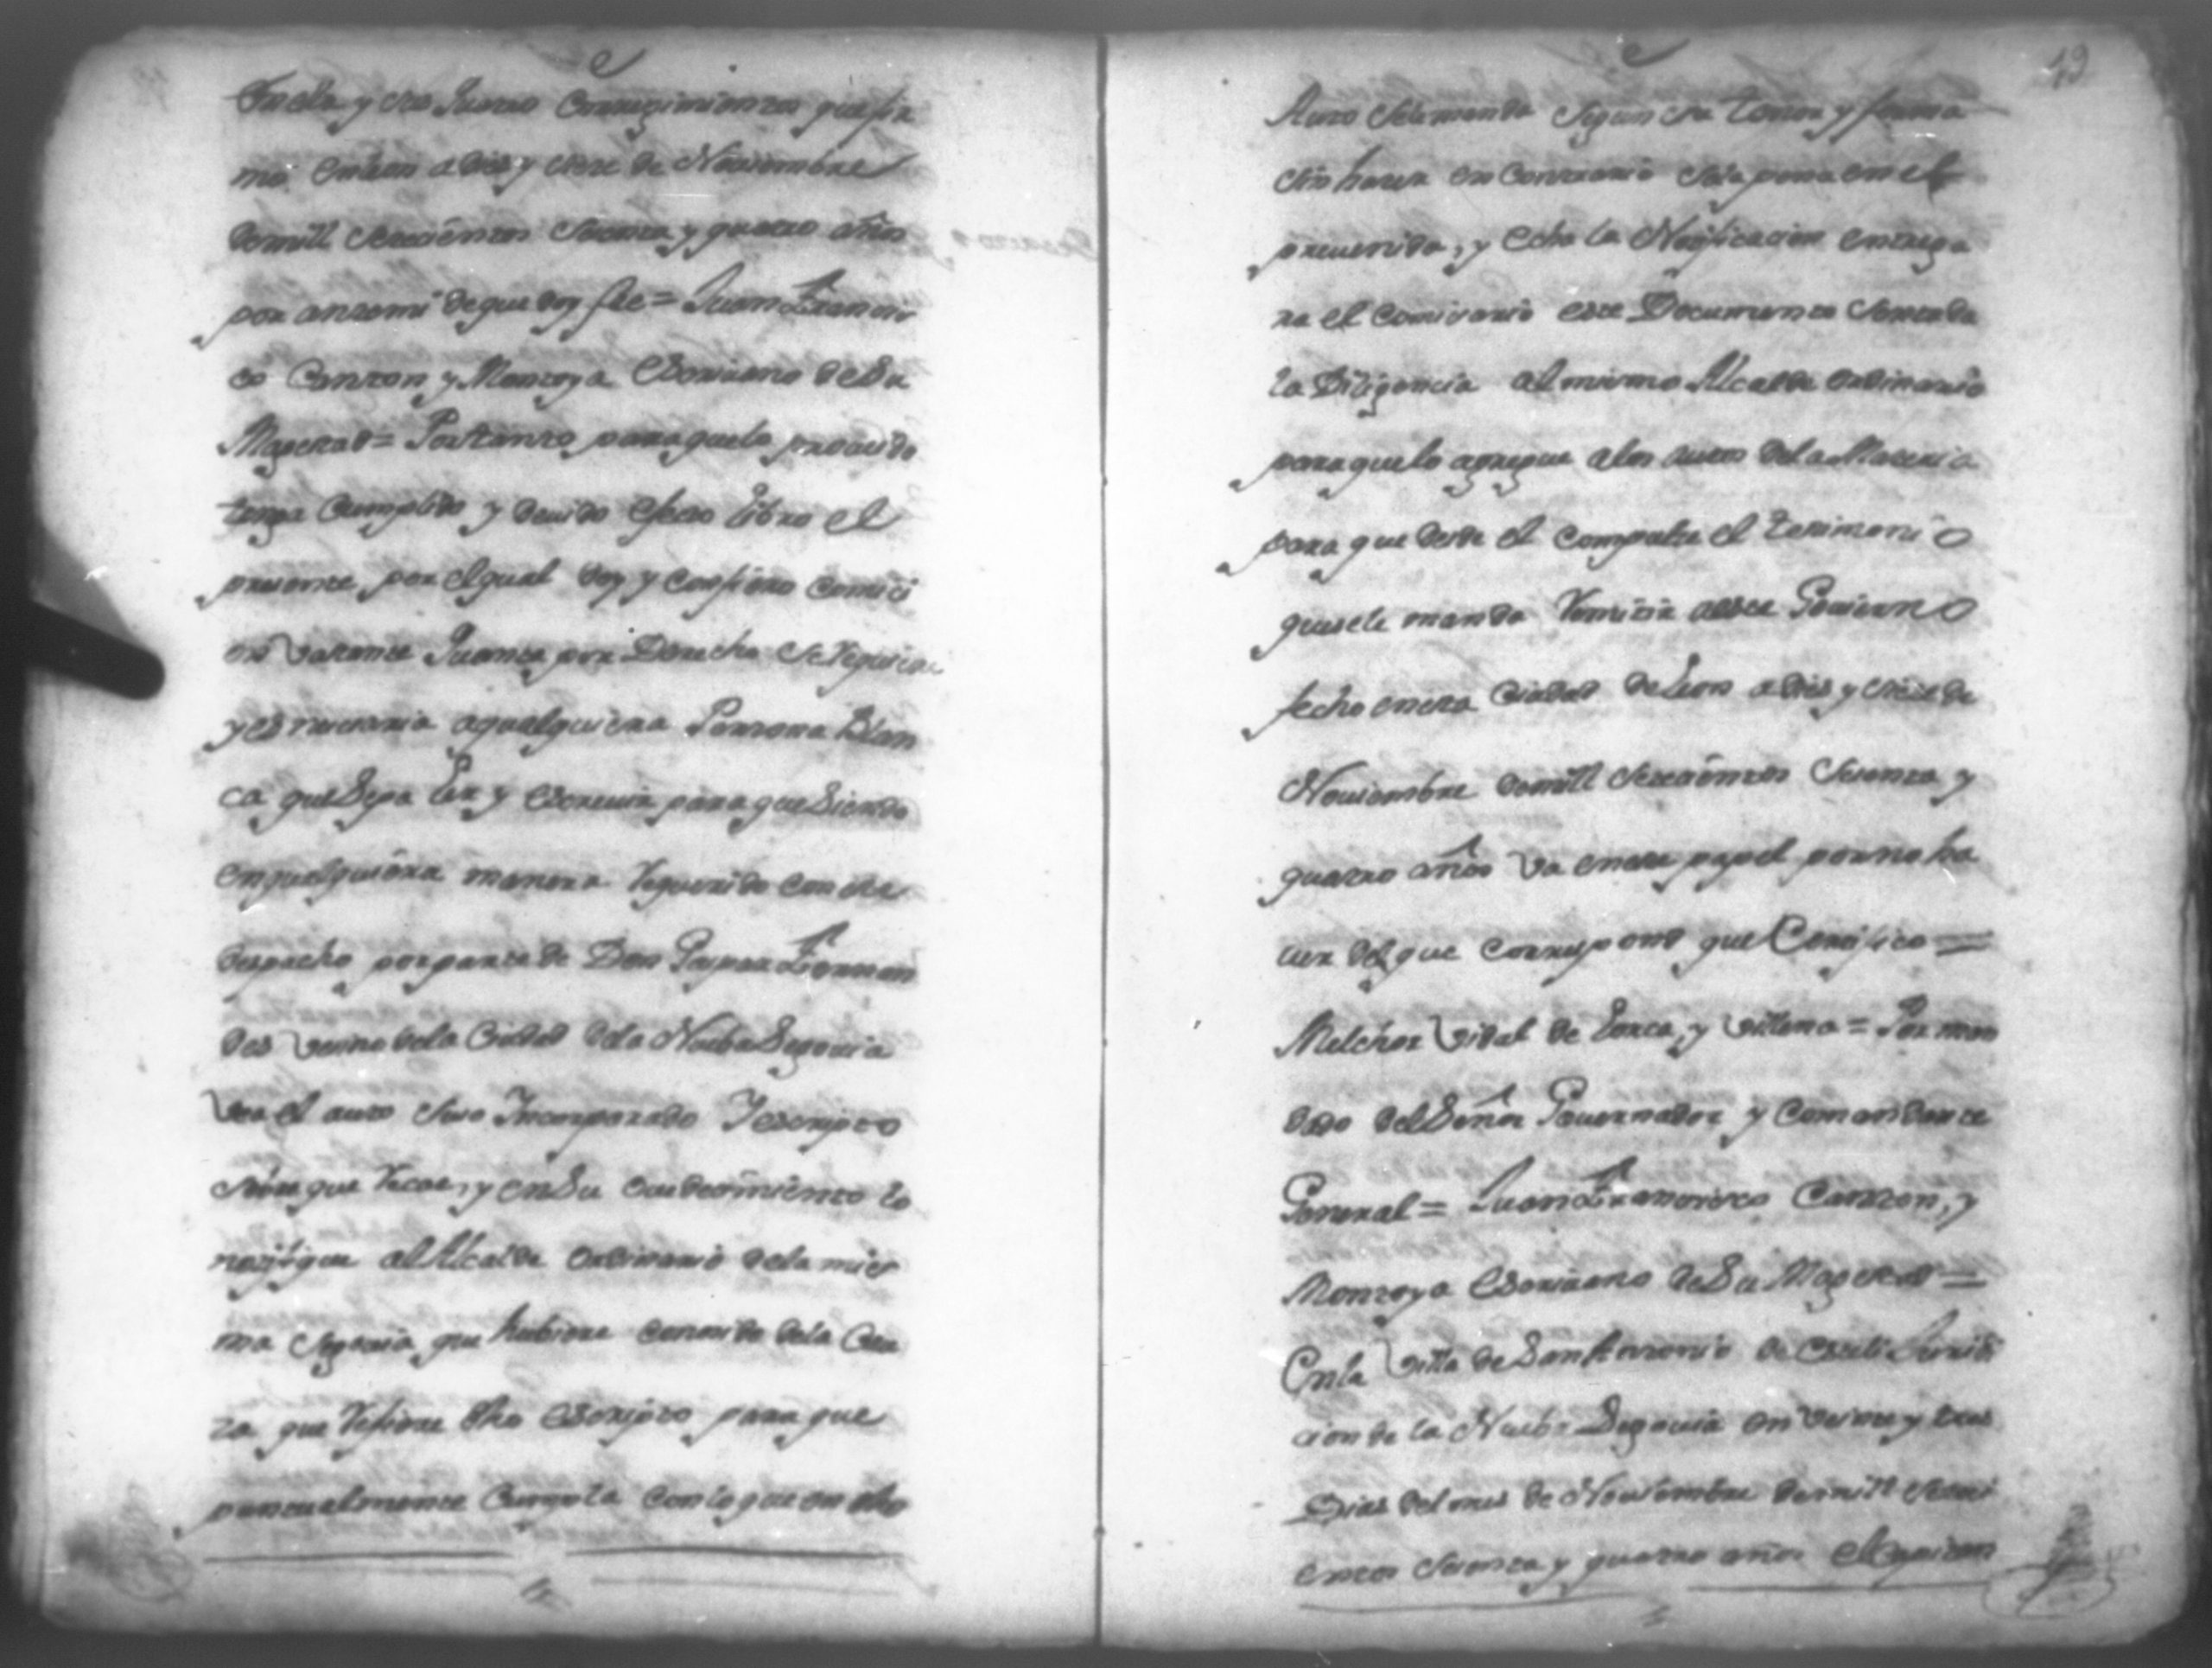 en ella y sus Juros Corregimientos que fir
mó en Leon a dies y siete de Noviembre
demill setecientos sesenta y quatro años
por antemi de que doy fee = Juan Francis
co Canton y Montoya Escrivano de Su
Magestad = Portanto paraquelo proveido
tenga Cumplido y devido efecto libro el
presente por elqual doy y confiero comici
on vastante quanta por Derecho se requiere
y es nesesaria aqualquiera Persona blan
ca que Sepa Ler y Escrevir para que Siendo
enqualquiera manera requerido con este
despacho porparte de Don Gaspar Fernan
des vecino dela Ciudad dela Nueba Segovia
vea el auto suso Incorporado Y escripto
sobre que recae, y en Su ovedecimiento lo
notifique al Alcalde ordinario dela mis
ma Segovia que hubiere conosido dela Cau
za que refiere dho Escripto para que
puntualmente Cumpla conloque en dho
19
Auto sele manda segun su tenor y forma
sin haser en Contrario sela pena en el
prevenida, y echa la Notificacion entrega
ra el Comisario este Documento sentada
la Diligencia al mismo Alcalde ordinario
paraquelo agregue alos autos dela Materia
para que desde el compulse el testimonio
quesele manda remitir aeste Govierno
fecho enesta Ciudad de Leon adies y siete de
Noviembre demill setecientos sesenta y
quatro años va eneste papel por no ha
ver del que corresponde que Certifico =
Melchor Vidal de Lorca, y Villena = Por man
dado del Señor Governador y Comandante
General = Juan Francisco Canton, y
Montoya Escrivano de Su Magestad =
Enla Villa de San Antonio de Esteli Jurisdi
cion de la Nueba Segovia en veinte y tres
Dias del mes de Noviembre demill seteci
entos sesenta y quatro años el Capitan